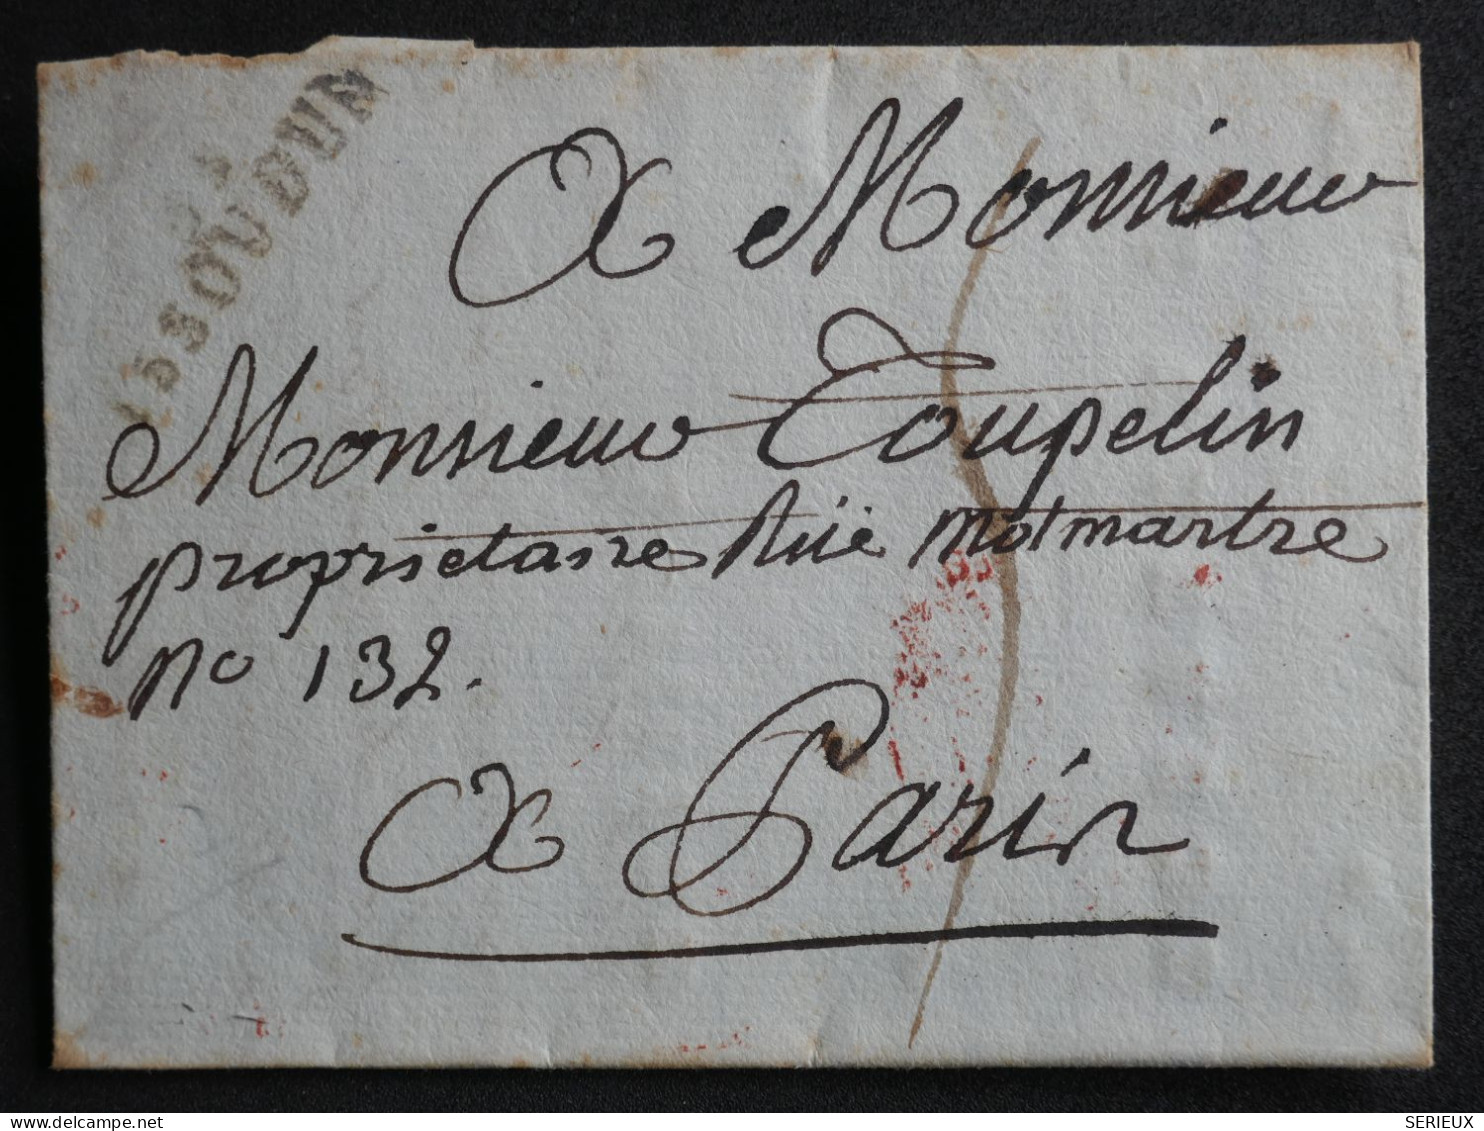 35
ISSOUDUN
A Monsieur
Monsieur Toupelin
proprietaire Ruë Motmartre
no 132.
A Paris
SERIEUX